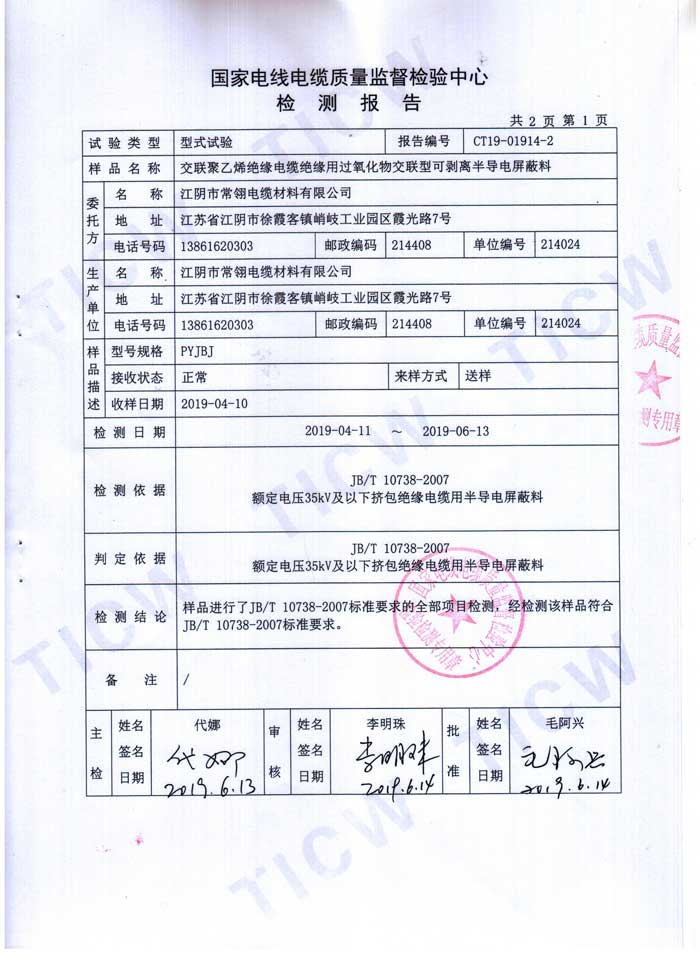 国家电线电缆质量监督检验中心
检 测 报 告
共 2 页 第 1 页
试 验 类 型 型式试验 报告编号 CT19-01914-2
样 品 名 称 交联聚乙烯绝缘电缆绝缘用过氧化物交联型可剥离半导电屏蔽料
委托方
名 称 江阴市常翎电缆材料有限公司
地 址 江苏省江阴市徐霞客镇峭岐工业园区霞光路7号
电话号码 13861620303 邮政编码 214408 单位编号 214024
生产单位
名 称 江阴市常翎电缆材料有限公司
地 址 江苏省江阴市徐霞客镇峭岐工业园区霞光路7号
电话号码 13861620303 邮政编码 214408 单位编号 214024
样品描述
型号规格 PYJBJ
接收状态 正常 来样方式 送样
收样日期 2019-04-10
检 测 日 期 2019-04-11 ～ 2019-06-13
检 测 依 据
JB/T 10738-2007
额定电压35kV及以下挤包绝缘电缆用半导电屏蔽料
判 定 依 据
JB/T 10738-2007
额定电压35kV及以下挤包绝缘电缆用半导电屏蔽料
检 测 结 论
样品进行了JB/T 10738-2007标准要求的全部项目检测，经检测该样品符合
JB/T 10738-2007标准要求。
备 注 /
主检
姓名 代娜
签名 代娜
日期 2019.6.13
审核
姓名 李明珠
签名 李明珠
日期 2019.6.14
批准
姓名 毛阿兴
签名 毛阿兴
日期 2019.6.14
国家电线电缆质量监督检验中心
TICW
TICW
TICW
TICW
TICW
TICW
TICW